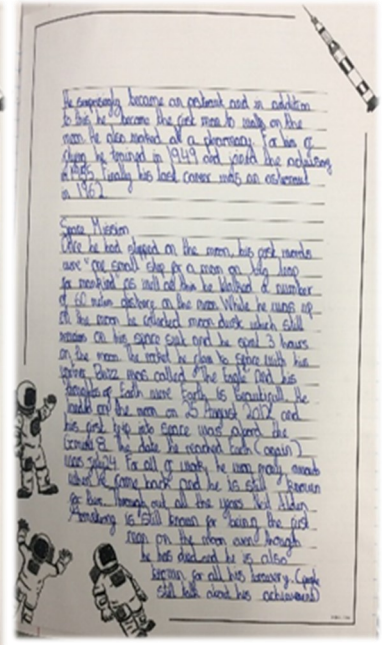 He surprisingly became an astronaut and in addition
to this he become the first man to walk on the
moon. He also worked at a pharmacy. For his of
flying he trained in 1949 and joined the
in 1955. Finally his last career was an astronaut
in 1962
Space Mission
Once he had stepped on the moon, his first words
were "one small step for a man one big leap
for mankind as well as this he walked a number
of 60 meters distance on the moon. While he was up
on the moon he collected moon dust which still
remains on his space suit and he spent 3 hours
on the moon. The rocket he flew to space with his
partner Buzz was called "The Eagle and his
thoughts of Earth were Earth is beautiful. He
on the moon on 25 August 2012 and
his first trip into space was aboard the
Gemini 8. The date he reached Earth (again)
was July 24. For all of work, he won many awards
when he came back and he is still known
for this. Through out all the years Neil Alden
Armstrong is still known for being the first
man on the moon even through
he has died and he is also
known for all his bravery. (people
still talk about his achievement)